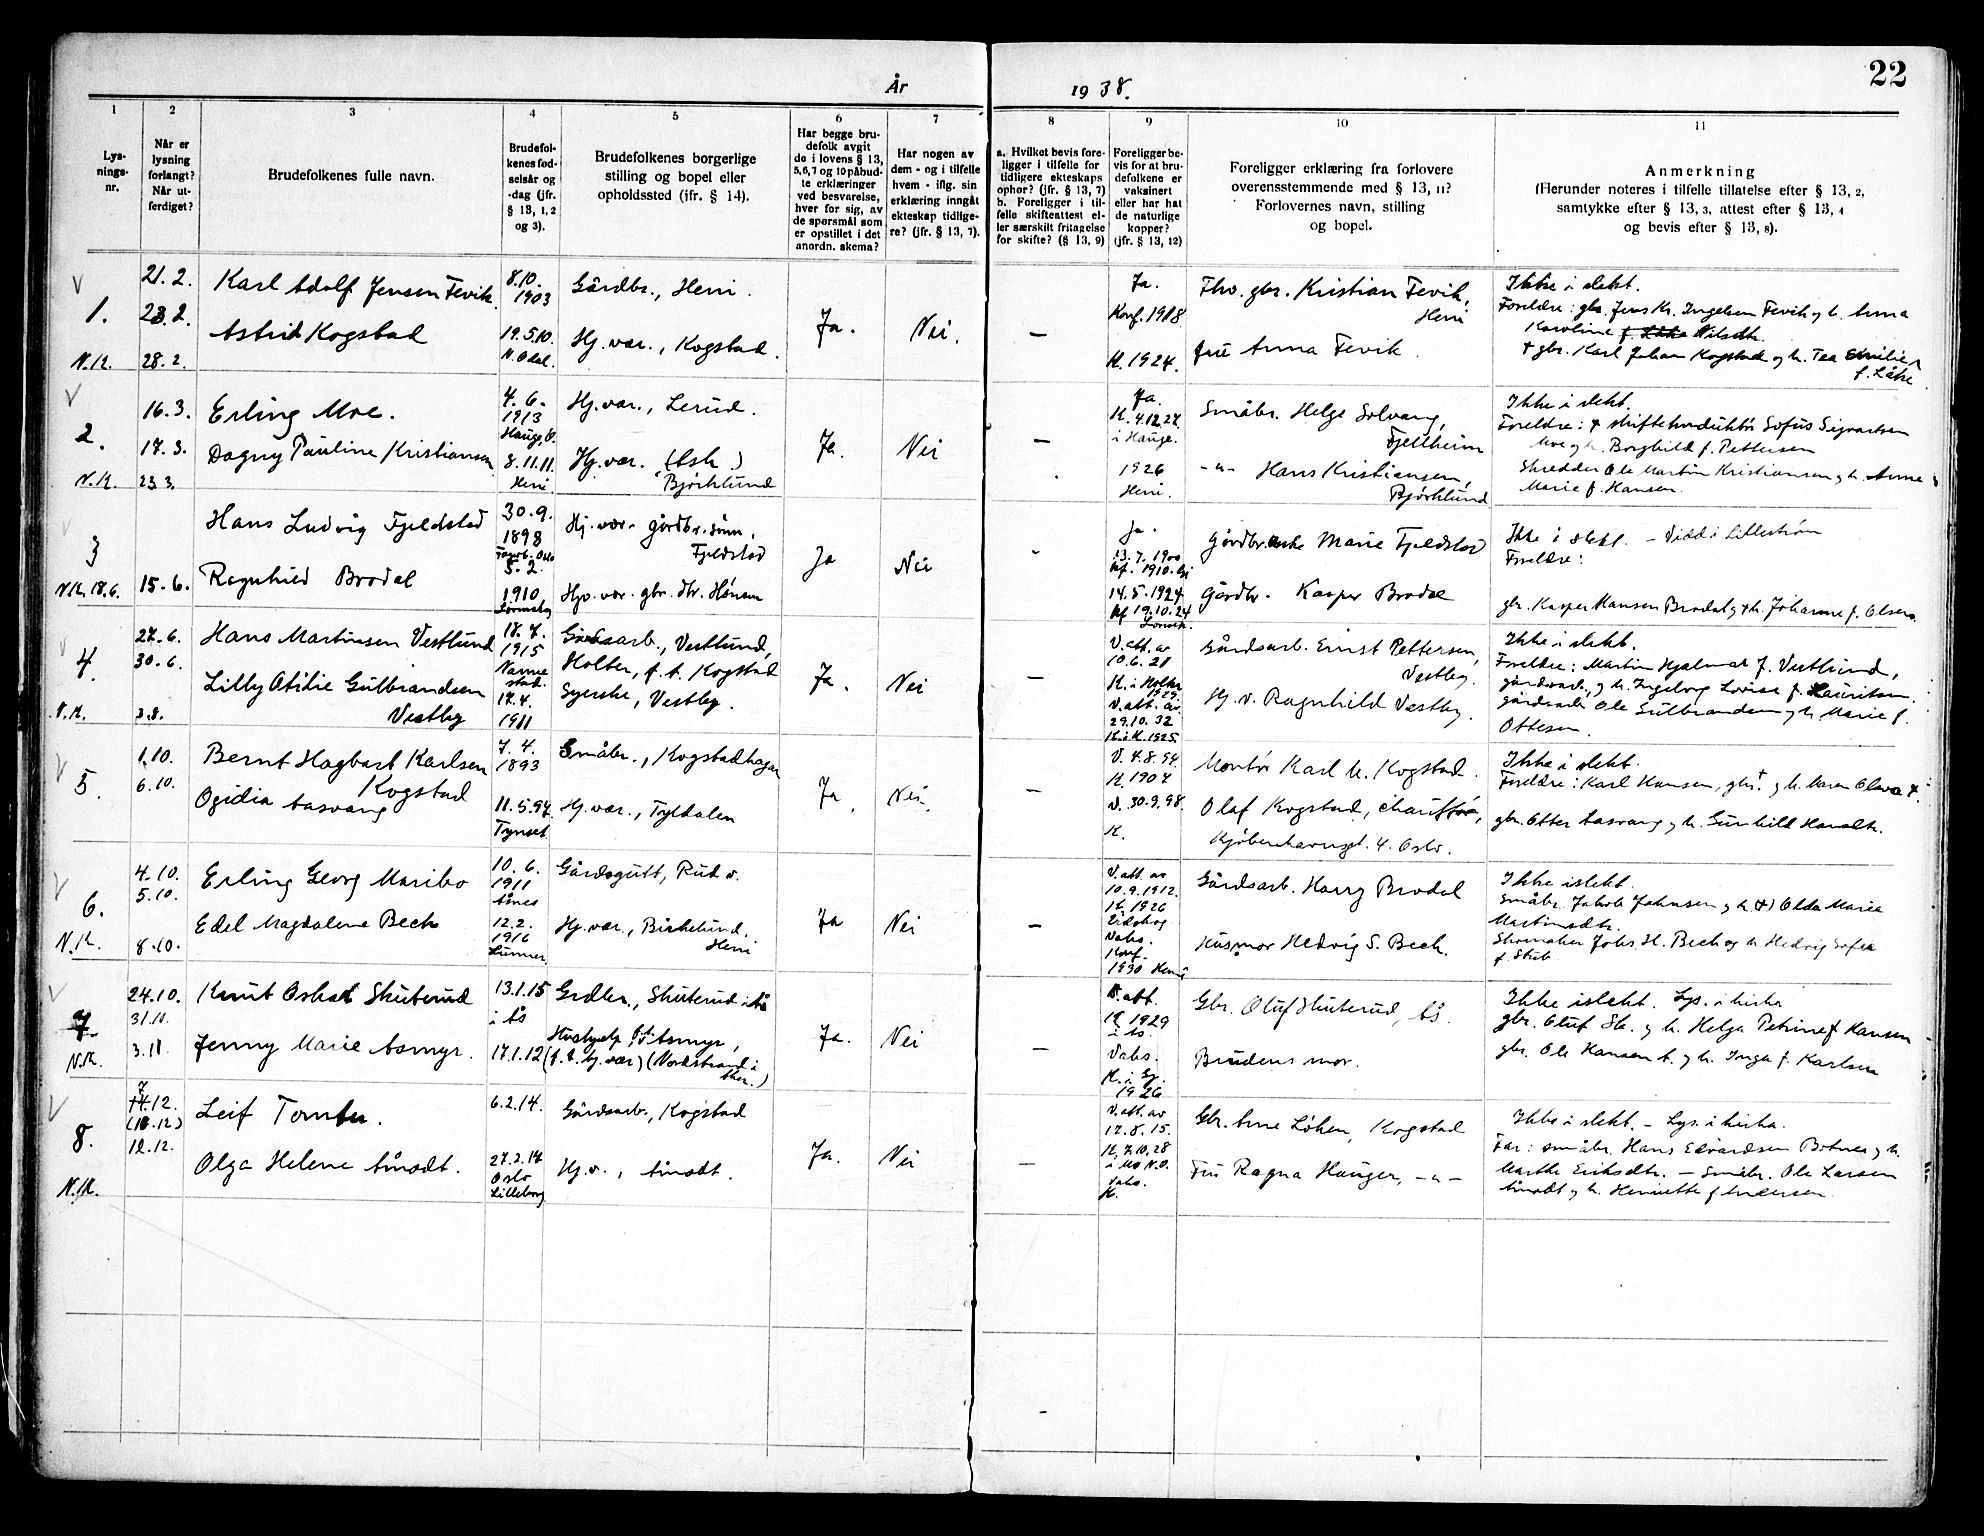 22
År 1938.
1 2 3 4 5 6 7 8 9 10 11
Lys-
nings-
nr.
Når er
lysning
forlangt?
Når ut-
ferdiget?
Brudefolkenes fulle navn.
Brudefol-
kenes fød-
selsår og
-dag (jfr.
§ 13, 1, 2
og 3).
Brudefolkenes borgerlige
stilling og bopel eller
opholdssted (jfr. § 14).
Har begge bru-
defolk avgit
de i lovens § 13,
5, 6, 7 og 10 påbud-
te erklæringer
ved besvarelse,
hver for sig, av
de spørsmål som
er opstillet i det
anordn. skema?
Har nogen av
dem - og i tilfelle
hvem - iflg. sin
erklæring inngått
ekteskap tidlige-
re? (jfr. § 13, 7).
a. Hvilket bevis fore-
ligger i tilfelle for
tidligere ekteskaps
ophør? (jfr. § 13, 7)
b. Foreligger i til-
felle skifteattest el-
ler særskilt fritagelse
for skifte? (§ 13, 9)
Foreligger be-
vis for at bru-
defolkene er
vaksinert
eller har hat
de naturlige
kopper?
(jfr. § 13, 12)
Foreligger erklæring fra forlovere
overensstemmende med § 13, 11?
Forlovernes navn, stilling
og bopel.
Anmerkning
(Herunder noteres i tilfelle tillatelse efter § 13, 2,
samtykke efter § 13, 3, attest efter § 13, 4
og bevis efter § 13, 8).
1.
N.K.
21.2.
23.2.
28.2.
Karl Adolf Jensen Fevik
Astrid Kogstad
8.10.
1903
19.5.10.
N. Odal.
Gårdbr., Heni.
Hj. vær., Kogstad.
Ja.
Nei.
—
Ja.
Konf. 1918
K. 1924.
Fhv. gbr. Kristian Fevik,
Heni
Fru Anna Fevik.
Ikke i slekt.
Foreldre: gbr. Jens Kr. Ingelsen Fevik og h. Anna
Karoline Nilsdtr.
+ gbr. Karl Johan Kogstad og h. Tea Emilie
f. Låke
2.
N.K.
16.3.
17.3.
23.3.
Erling Moe.
Dagny Pauline Kristiansen
4.6.
1913
8.11.11.
Heni.
Hj. vær., Lerud.
Hj. vær. (Ask)
Bjørklund
Ja.
Nei
—
Ja.
K. 4.12.27.
i Hauge.
1926
Heni.
Småbr. Helge Solvang,
Fjellheim
-"- Hans Kristiansen,
Bjørklund
Ikke i slekt.
Foreldre: + skiftekonduktør Sofus Sigvartsen
Moe og h. Borghild f. Pettersen
Skredder Ole Martin Kristiansen og h. Anne
Marie f. Hansen.
3
N.K. 18.6.
15.6.
Hans Ludvig Fjeldstad
Ragnhild Brodal
30.9.
1898
5.2.
1910
Hj. vær. gårdbr. sønn,
Fjeldstad
Hjv. vær. gbr. dtr. Hønsen
Ja
Nei
-
Ja.
13.7.1900
Kf. 1910.
14.5.1924
Kf 19.10.24
Gårdbr.enke Marie Fjeldstad
Gårdbr. Kasper Brodal
Ikke i slekt. - Viddi Lillestrøm
Foreldre:
gbr. Kasper Hansen Brodal og + h. Johanne f. Olsen
4.
N.K.
27.6.
30.6.
3.8.
Hans Martinsen Vestlund
Lilly Otilie Gulbrandsen
Vestby
18.7.
1915
Nannestad.
17.4.
1911
Gårdsarb., Vestlund,
Holter, f. t. Kogstad
Syerske, Vestby.
Ja.
Nei
—
V. att. av
10.6.21
K. i Holter
1929.
V. att. av
29.10.32
K. i H. 1925.
Gårdsarb. Ernst Pettersen,
Vestby.
Hj. v. Ragnhild Vestby.
Ikke i slekt.
Foreldre: Martin Hjalmar f. Vestlund,
gårdsarb., og h. Ingeborg Lovise f. Lauritsen
gårdsarb. Ole Gulbrandsen og h. Marie f.
Ottesen.
5.
1.10.
6.10.
Bernt Hagbart Karlsen
Kogstad
Ogidia Aasvang
7.4.
1893
11.5.97.
Tynset
Småbr., Kogstadhagen
Hj. vær., Tyldalen
Ja.
Nei.
—
V. 4.8.94
K. 1907
V. 30.9.98.
K.
Montør Karl H. Kogstad.
Olaf Kogstad, chauffør,
Kjøbenhavngt. 4. Oslo.
Ikke i slekt.
Foreldre: Karl Hansen, gbr. + og h. Maren Olava +
gbr. Otter Aasvang og h. Gunhild Hansdtr.
6.
N.K.
4.10.
5.10.
8.10.
Erling Georg Maribo
Edel Magdalene Beck
10.6.
1911
Årnes
12.2.
1916
Lunner
Gårdsgutt, Rud v.
Hj. vær., Birkelund.
Heni
Ja
Nei
—
V. att. av
10.9.1912.
K. 1926
Eidskog
Vaks.
Konf.
1930 Heni
Gårdsarb. Harry Brodal
Husmor Hedvig S. Beck.
Ikke i slekt.
Småbr. Jakob Johnsen og h. (+) Olda Marie
Martinsdtr.
Skomaker Johs. H. Beck og h. Hedvig Sofie
f. Stub.
7.
N.K.
24.10.
31.10.
3.11.
Knut Oskar Skuterud
Jenny Marie Asmyr.
13.1.15
i Ås
17.1.12
Grdbr., Skuterud i Ås
Hushjelp Asmyr,
(f. t. hj. vær) (Nordstrand i
Aker.)
Ja.
Nei
—
V. att.
K. 1929
i Ås.
Vaks.
K. i Gj.
1926
Gbr. Oluf Skuterud, Ås.
Brudens mor.
Ikke i slekt. Lys. i kirka
gbr. Oluf Sk. og h. Helga Petrine f. Hansen
gbr. Ole Hansen A. og h. Inga f. Karlsen
8.
N.K.
7
14.12.
(10.12)
12.12.
Leif Tomter.
Olga Helene Åmodt.
6.2.14.
27.2.17
Oslo
Lilleborg
Gårdsarb., Kogstad
Hj. v., Åmodt.
Ja.
Nei
—
V. att. av
17.8.15.
K. 7.10.28
i Mo N.O.
Vaks.
K.
Gbr. Arne Løken, Kogstad
Fru Ragna Hauger, -"-
Ikke i slekt. - Lys. i kirka.
Far: småbr. Hans Edvardsen Botner og h.
Marthe Eriksdtr. — Småbr. Ole Larsen
Åmodt og h. Henriette f. Andersen.
—